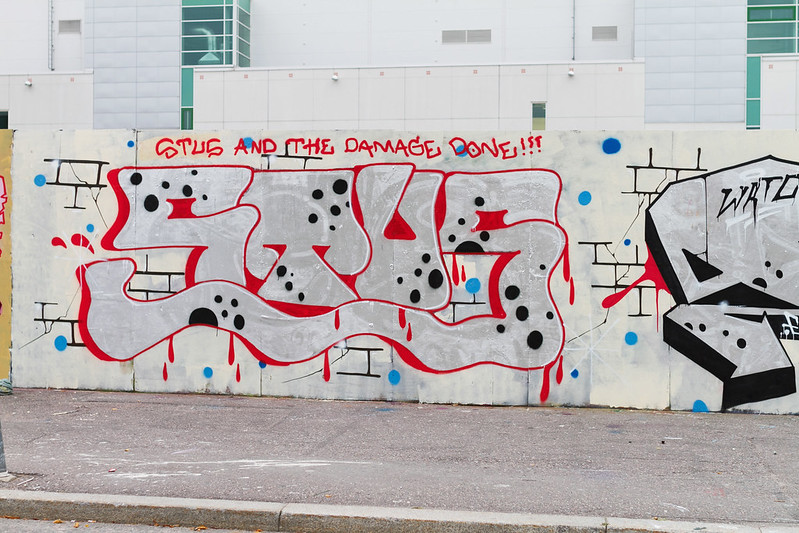 STUS AND THE DAMAGE DONE!!!
STUS